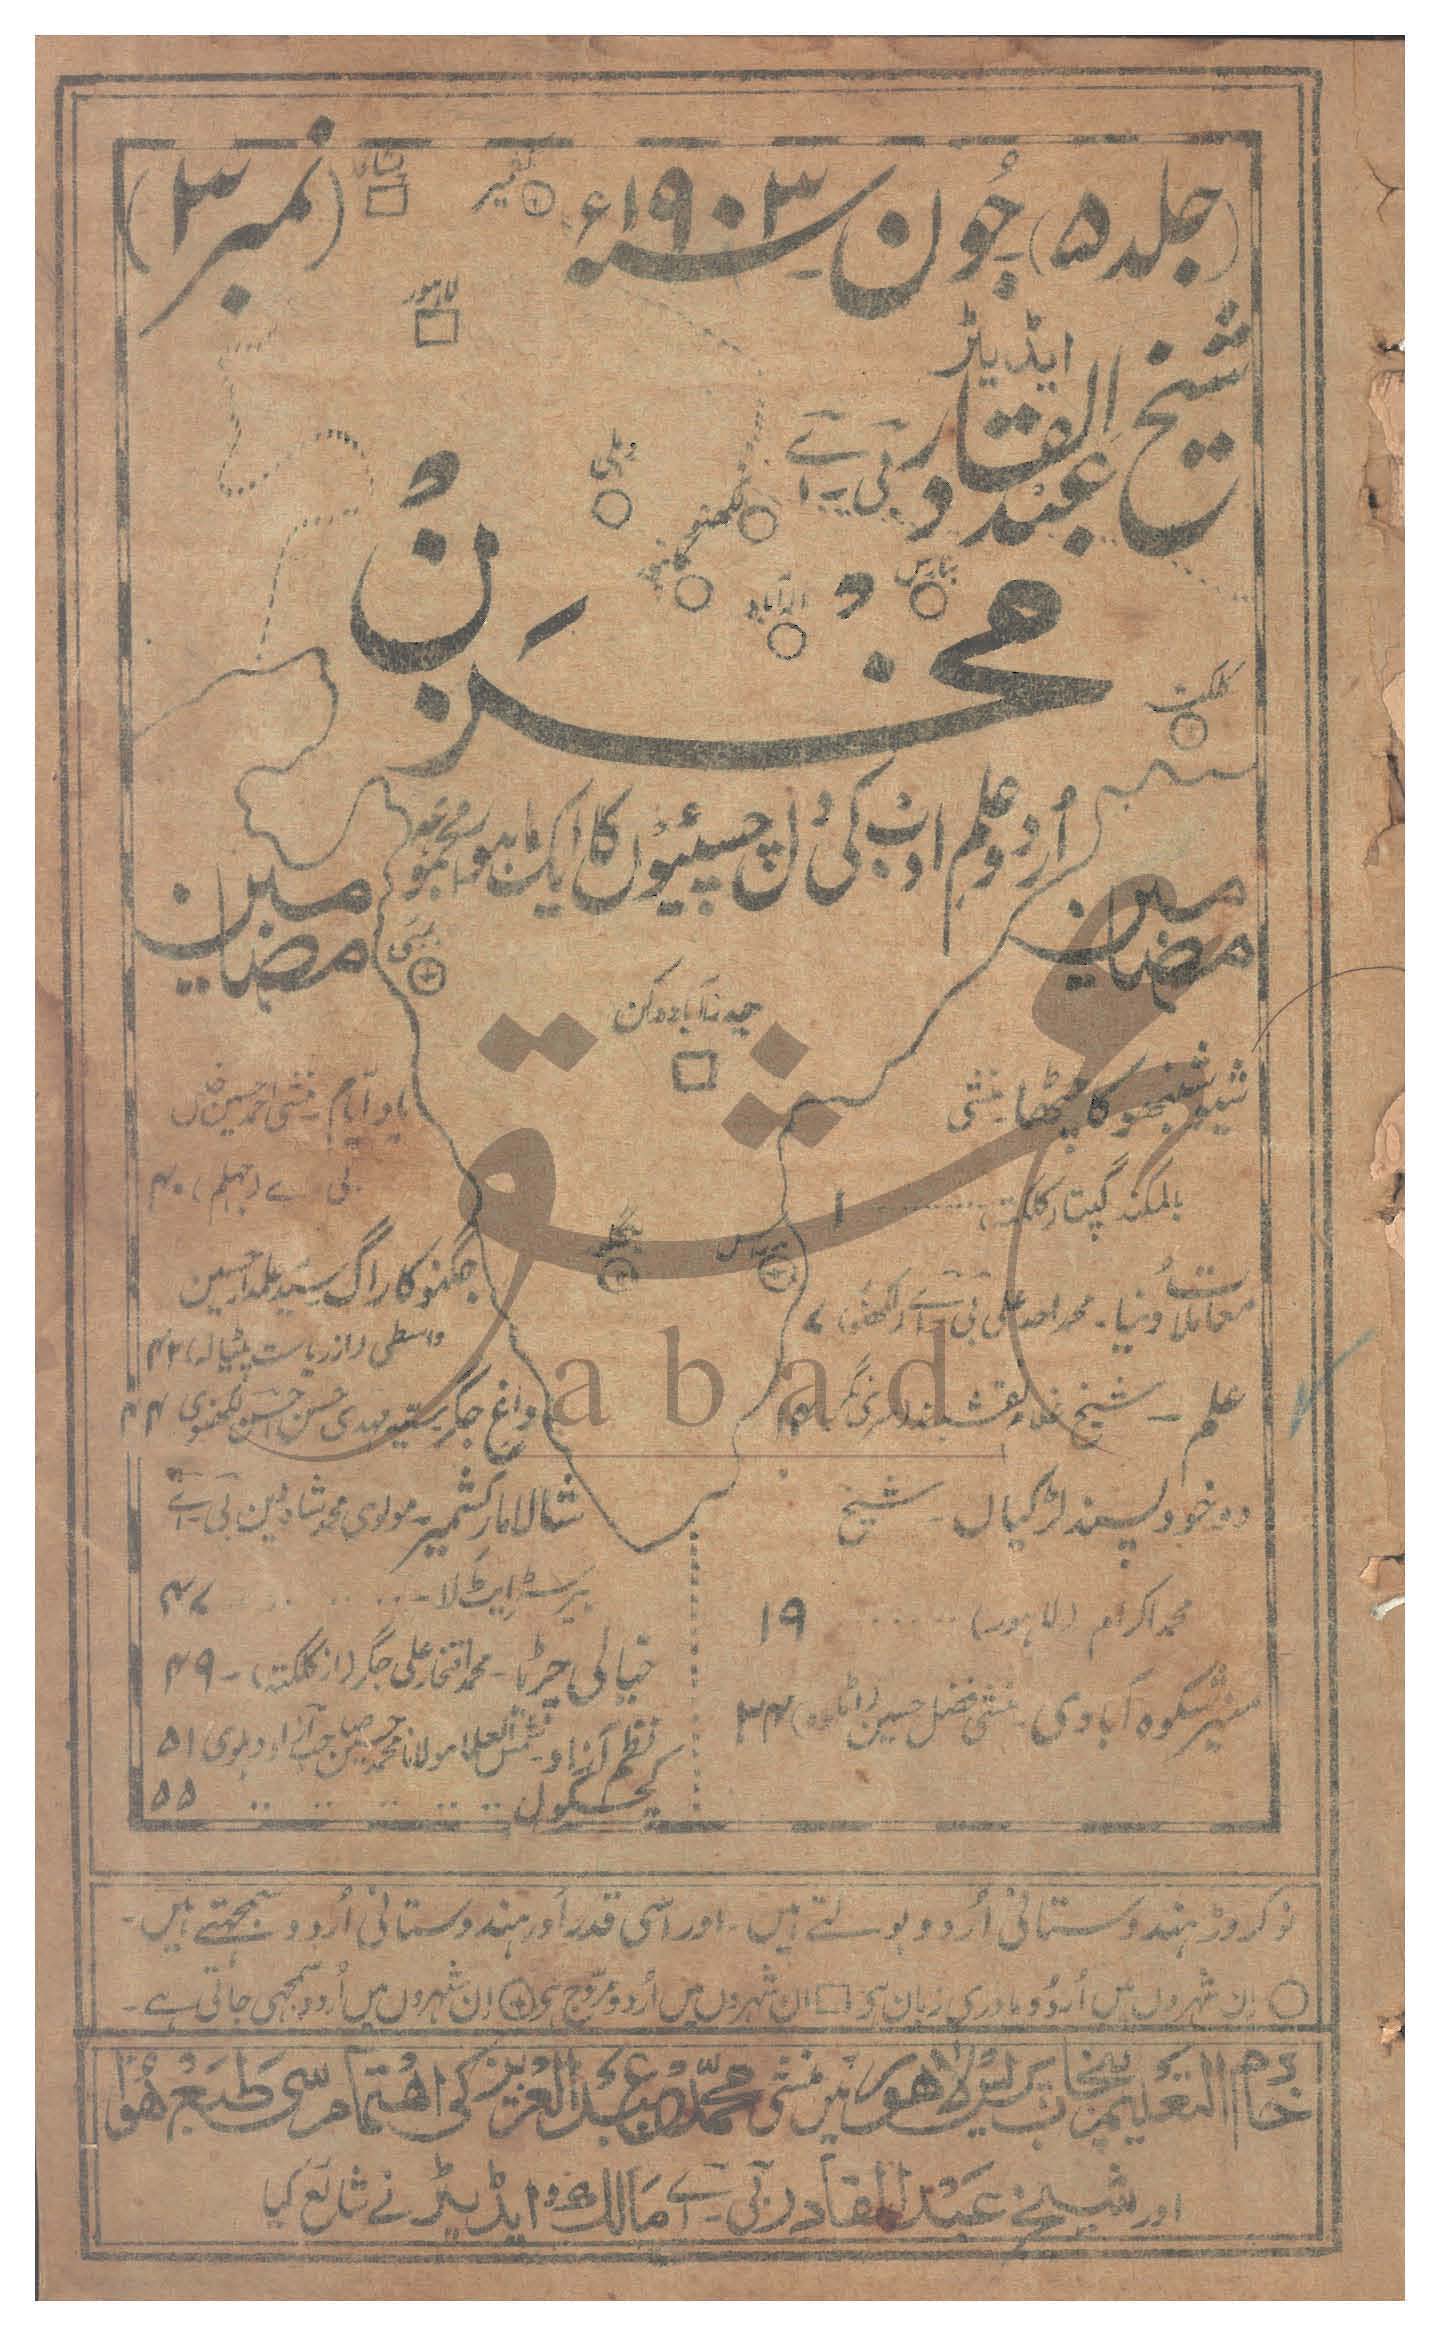 (جلد ۵) جون سنہ ۱۹۰۳ء (نمبر ۳)
کشمیر
پشاور
لاہور
ایڈیٹر
شیخ عبدالقادر بی۔اے
دہلی
لکھنؤ
کانپور
الہ آباد
بنارس
کلکتہ
مخزن
اُردو علم و ادب کی دلچسپیوں کا ایک ماہوار مجموعہ
بمبئی
حیدرآباد دکن
بنگلور
مدراس
مضامین
شیو شنبھو کا چٹھا۔ منشی
بالمکند گپتا (کلکتہ) ۱
معاملات دنیا۔ محمد احمد علی بی۔اے (لکھنؤ) ۷
علم۔ شیخ غلام نقشبند
وہ خود پسند لڑکیاں۔ شیخ
محمد اکرام (لاہور) ۱۹
منیر شکوہ آبادی۔ منشی فضل حسین (اٹاوہ) ۳۴
مضامین
یاد ایام۔ منشی احمد حسین خاں
بی۔اے (جہلم) ۴۰
جگنو کا راگ۔ سید علمدار حسین
واسطی (از ریاست پٹیالہ) ۴۲
داغ جگر۔ سید مہدی حسن احسن لکھنوی ۴۴
شالامار کشمیر۔ مولوی محمد شاہ دین بی۔اے
بیرسٹر ایٹ لا۔ ۴۷
خیالی چڑیا۔ محمد افتخار علی جگر (از کلکتہ)۔ ۴۹
نظم آزاد۔ شمس العلما مولانا محمد حسین صاحب آزاد دہلوی ۵۱
کچکول ۵۵
نو کروڑ ہندوستانی اُردو بولتے ہیں۔ اور اسی قدر اور ہندوستانی اُردو سمجھتے ہیں۔
○ اِن شہروں میں اُردو مادری زبان ہی □ ان شہروں میں اُردو مروّج ہی ⊕ اِن شہروں میں اُردو سمجھی جاتی ہے۔
خادم التعلیم پنجاب پریس لاہور میں منشی محمد عبدالعزیز کی اہتمام سی طبع ہوا
اور شیخ عبدالقادر بی۔اے مالک و ایڈیٹر نے شائع کیا
abad